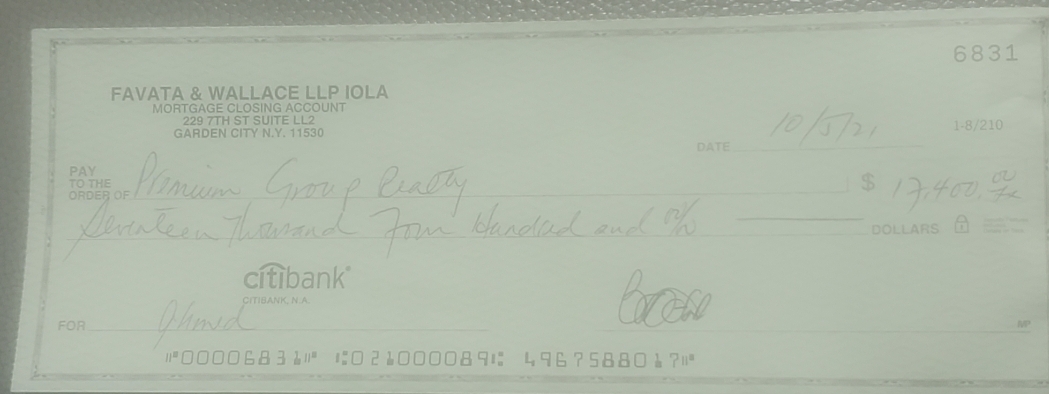 6831
FAVATA & WALLACE LLP IOLA
MORTGAGE CLOSING ACCOUNT
229 7TH ST SUITE LL2
GARDEN CITY N.Y. 11530
1-8/210
DATE 10/5/21
PAY TO THE ORDER OF Premium Group Realty $ 17,400.
Seventeen Thousand Four Hundred and DOLLARS
citibank
CITIBANK, N.A.
FOR Ahmed
MP
⑈00006831⑈ ⑆021000089⑆ 4967588017⑈